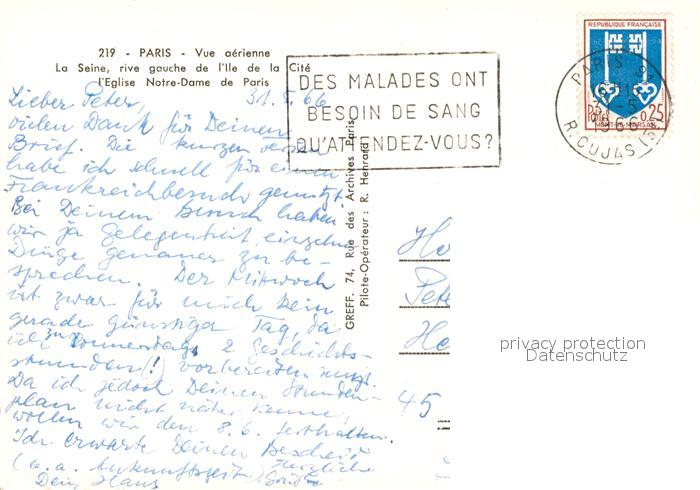 219 - PARIS - Vue aérienne
La Seine, rive gauche de l'Ile de la Cité
l'Eglise Notre-Dame de Paris
DES MALADES ONT
BESOIN DE SANG
QU'ATTENDEZ-VOUS?
REPUBLIQUE FRANÇAISE
0,25
MONT-DE-MARSAN
PARIS
R. CUJAS (5
Lieber Peter, 31.5.66
vielen Dank für Deinen
Brief. Die kurzen
habe ich schnell für einen
Frankreichbesuch genutzt.
Bei Deinem Besuch haben
wir ja Gelegenheit, einzelne
Dinge genauer zu be-
sprechen. Der Mittwoch
ist zwar für mich kein
gerade günstiger Tag, da
ich zu Donnerstag 2 Geschichts-
stunden (!) vorbereiten muß.
Da ich jedoch Deinen Stunden-
plan nicht näher kenne,
wollen wir den 8.6. festhalten.
Ich erwarte Deinen Bescheid
(u. a. Ankunftszeit) Herzliche
Dein Hans Grüße
GREFF. 74, Rue des Archives Paris
Pilote-Opérateur: R. Henrard
He
Pete
He
45
privacy protection
Datenschutz